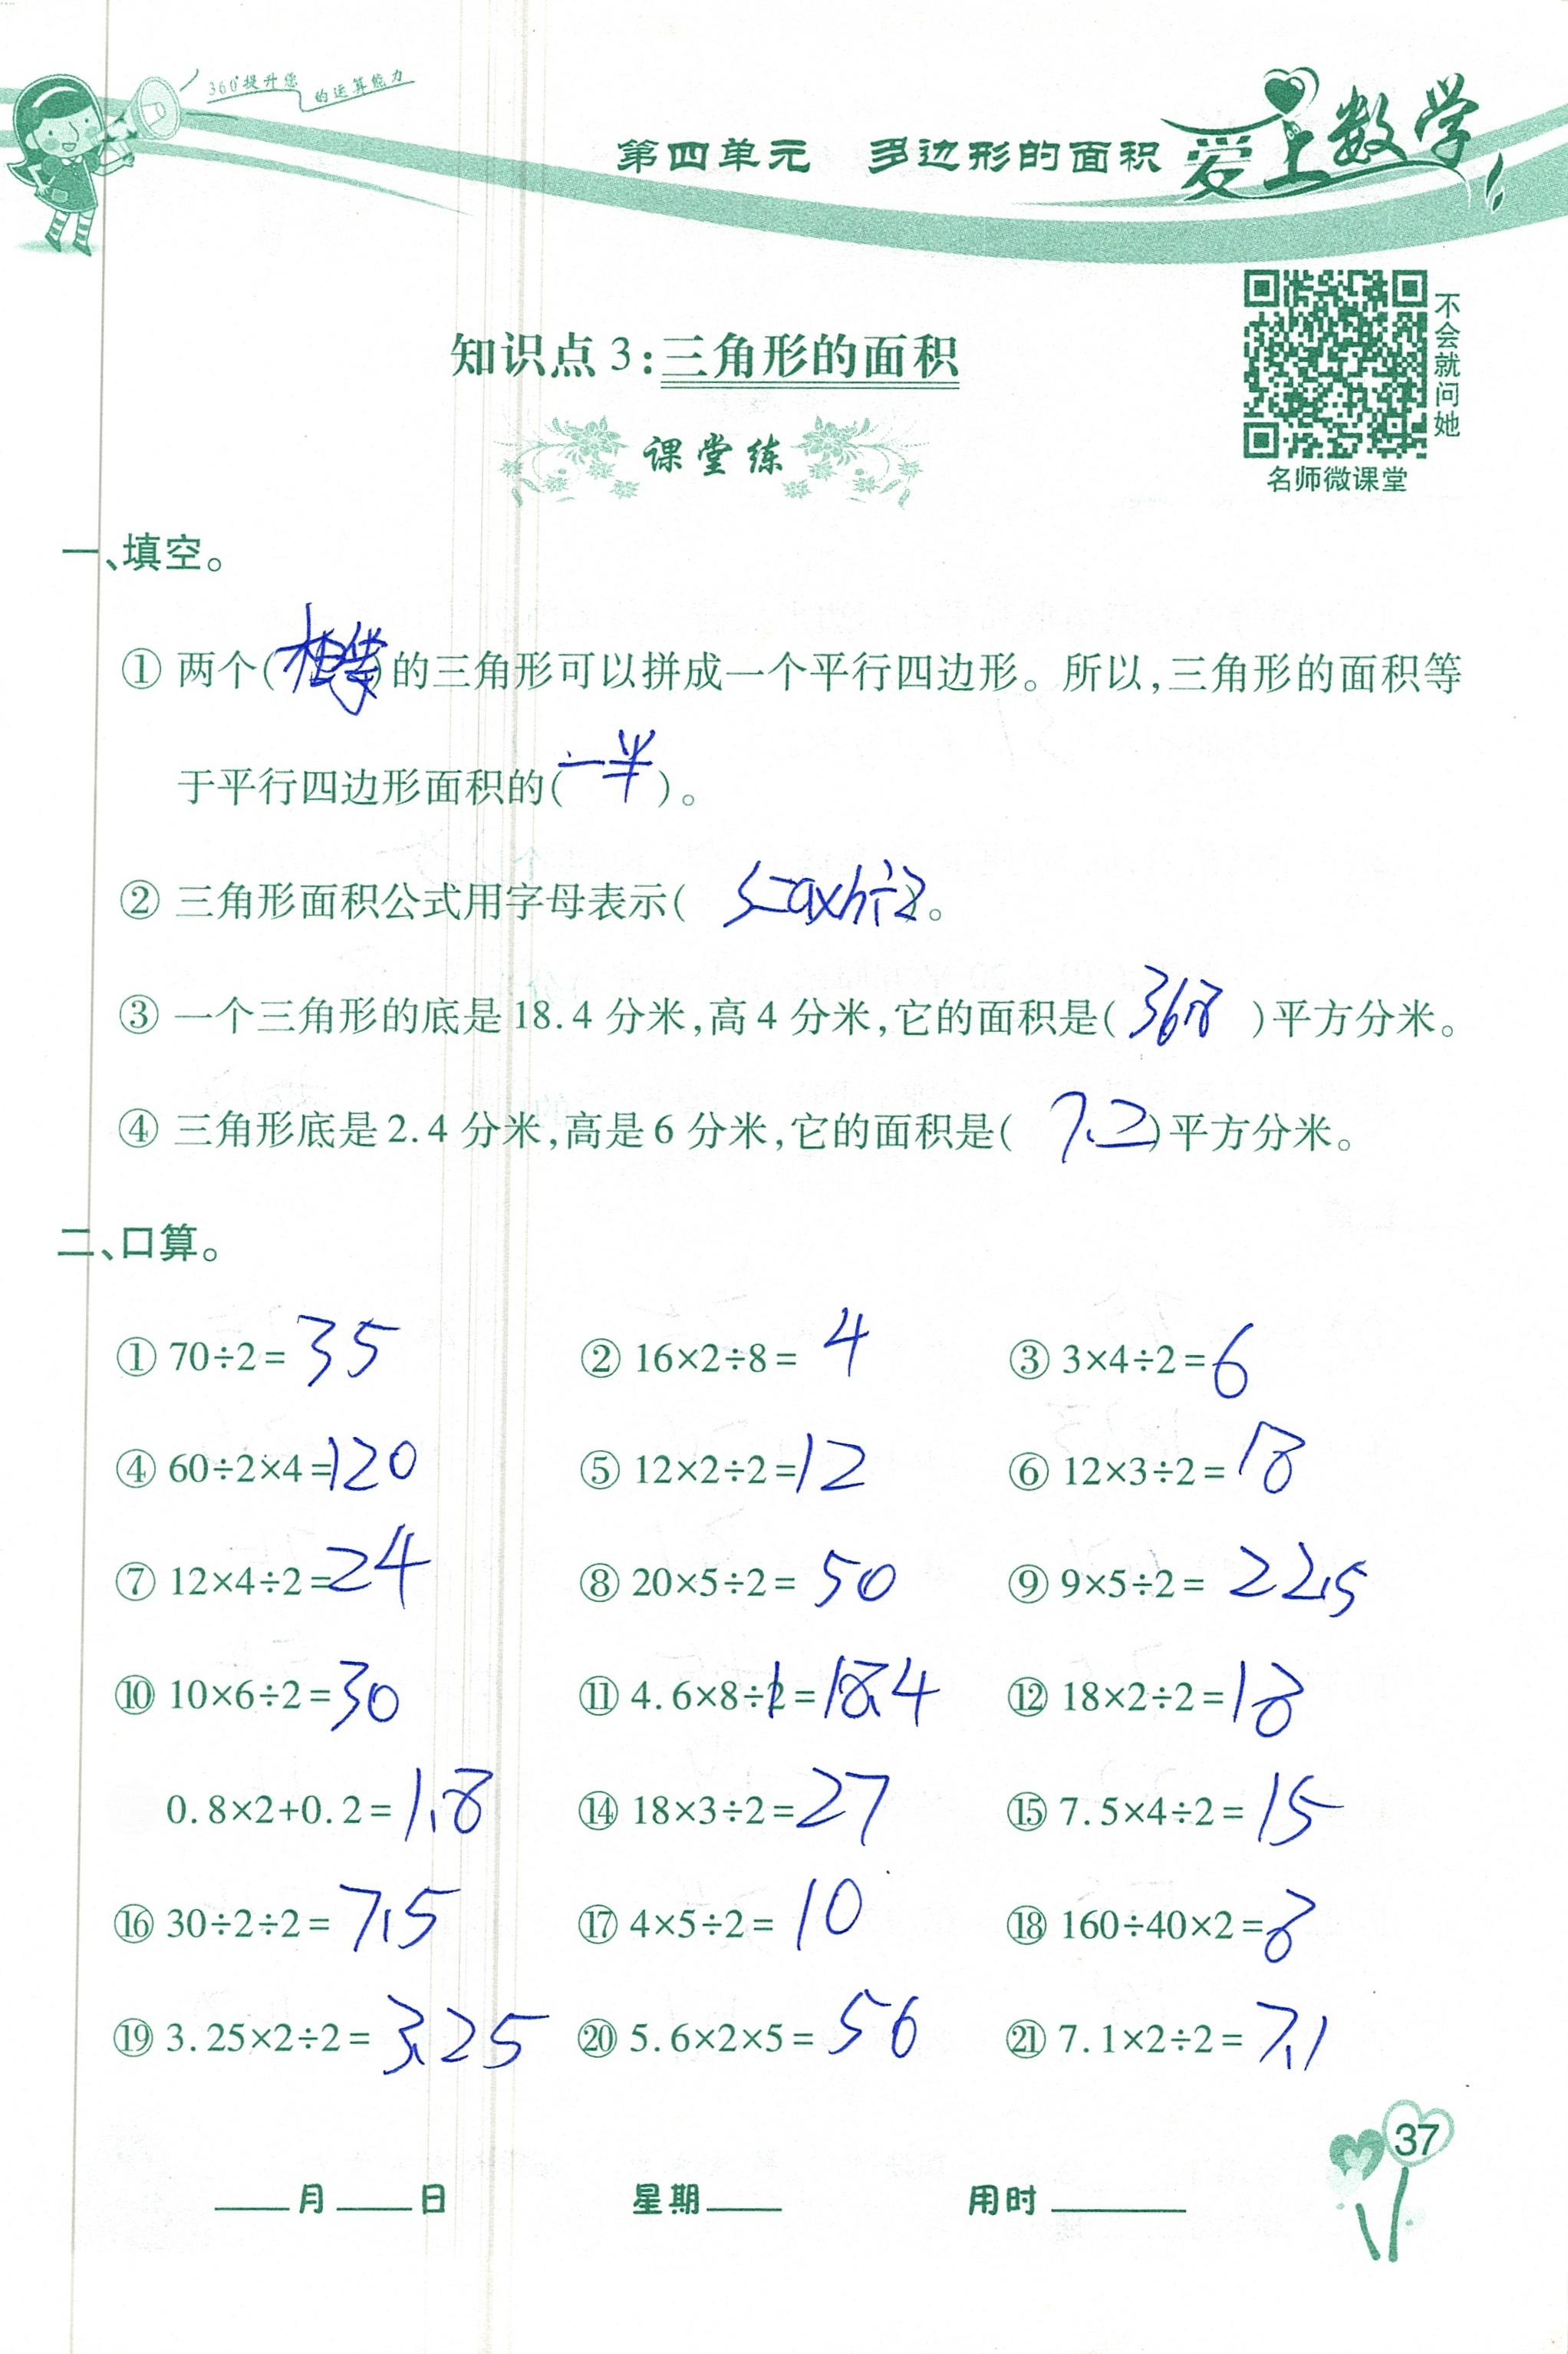 360°提升您的运算能力
第四单元 多边形的面积 爱上数学
不会就问她
名师微课堂
知识点 3:三角形的面积
课堂练
一、填空。
① 两个(相等)的三角形可以拼成一个平行四边形。所以,三角形的面积等
于平行四边形面积的(一半)。
② 三角形面积公式用字母表示( S=a×h÷2)。
③ 一个三角形的底是 18.4 分米,高 4 分米,它的面积是( 36.8 )平方分米。
④ 三角形底是 2.4 分米,高是 6 分米,它的面积是( 7.2)平方分米。
二、口算。
① 70÷2= 35 ② 16×2÷8= 4 ③ 3×4÷2=6
④ 60÷2×4=120 ⑤ 12×2÷2=12 ⑥ 12×3÷2= 18
⑦ 12×4÷2=24 ⑧ 20×5÷2= 50 ⑨ 9×5÷2= 22.5
⑩ 10×6÷2=30 ⑪ 4.6×8÷2=18.4 ⑫ 18×2÷2=18
0.8×2+0.2=1.8 ⑭ 18×3÷2=27 ⑮ 7.5×4÷2= 15
⑯ 30÷2÷2= 7.5 ⑰ 4×5÷2= 10 ⑱ 160÷40×2=8
⑲ 3.25×2÷2= 3.25 ⑳ 5.6×2×5= 56 ㉑ 7.1×2÷2= 7.1
37
____月____日 星期____ 用时______